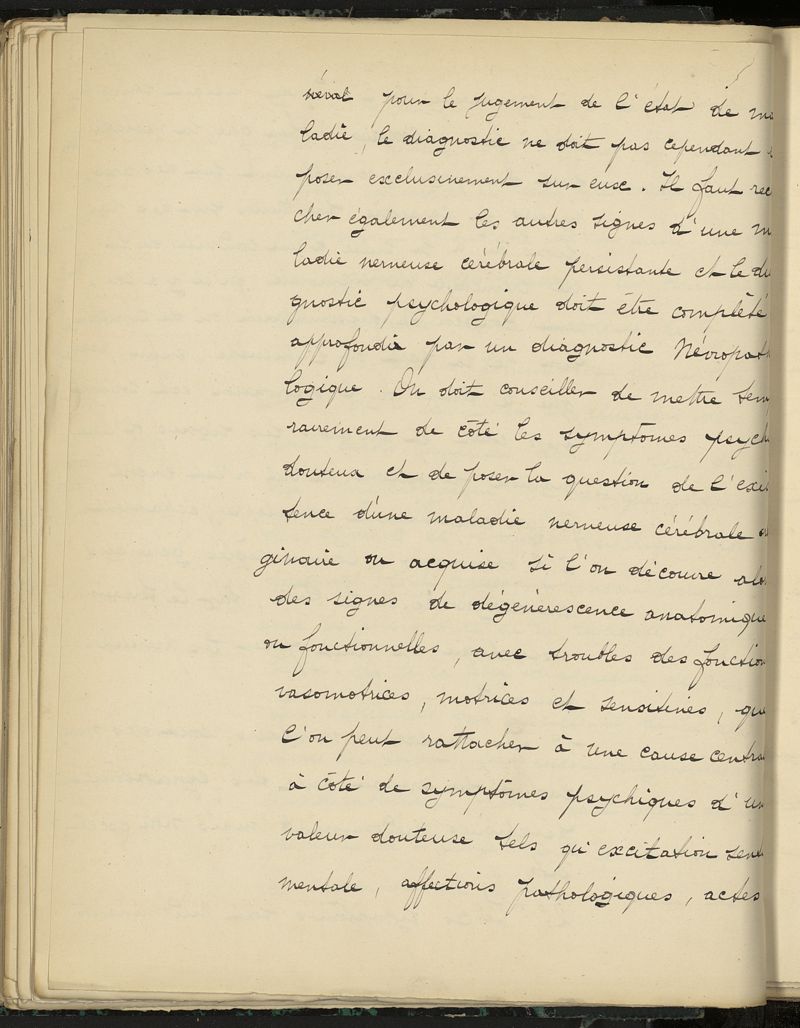 pour le jugement de l'état de ma
ladie, le diagnostic ne doit pas cependant
poser exclusivement sur eux. Il faut rec
cher également les autres signes d'une m
ladie nerveuse cérébrale persistante et le di
gnostic psychologique doit être complèté
approfondie par un diagnostic Névropath
logique. On doit conseiller de mettre tem
rairement de côté les symptômes psych
douteux et de poser la question de l'exis
tence d'une maladie nerveuse cérébrale or
ginaire ou acquise si l'on découvre alo
des signes de dégénérescence anatomique
ou fonctionnelles, avec troubles des fonction
vasomotrices, motrices et sensitives, que
l'on peut rattacher à une cause centra
à côté de symptômes psychiques d'un
valeur douteuse tels qu'excitation sent
mentale, affections pathologiques, actes